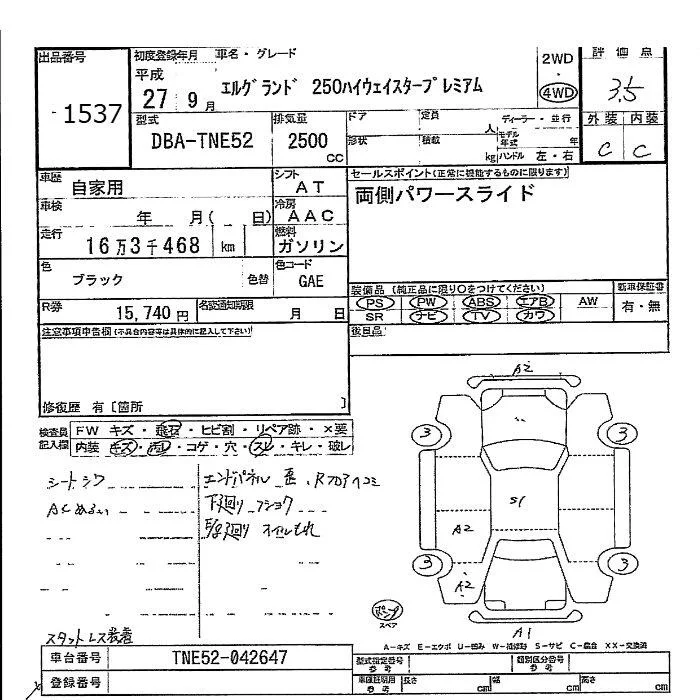 出品番号
1537
初度登録年月
車名・グレード
平成
27 9 月
エルグランド 250ハイウェイスタープレミアム
2WD
4WD
評価点
3.5
外装 内装
C C
型式
DBA-TNE52
排気量
2500 CC
ドア
定員
人
形状
積載
kg
ディーラー・並行
モデル年式
年
ハンドル 左・右
車歴
自家用
シフト
AT
車検
年 月( 日)
冷房
AAC
走行
16万3千468 km
燃料
ガソリン
色
ブラック
色替
色コード
GAE
R券
15,740円
名変通知期限
月 日
セールスポイント(正常に機能するものに限ります)
両側パワースライド
装備品 (純正品に限り○をつけてください)
新車保証書
PS PW ABS エアB AW
SR ナビ TV カワ
有・無
後日品
注意事項申告欄(不具合内容等は具体的に記入して下さい)
修復歴 有 [箇所 ]
検査員記入欄
FW キズ・飛石・ヒビ割・リペア跡・×要
内装 キズ・汚レ・コゲ・穴・スレ・キレ・破レ
シートシワ
ACぬるい
スタットレス装着
エンドパネル 歪、Rフロアヘコミ
下廻り フショク
E/g廻り オイルもれ
A2
3 3
S1
A2
3 3
A2
A1
スペア
A-キズ E-エクボ U-凹み W-補修跡 S-サビ C-腐食 XX-交換済
車台番号
TNE52-042647
登録番号
型式指定番号
参考
類別区分番号
参考
車庫証明用
参考
長さ cm
幅 cm
高さ cm